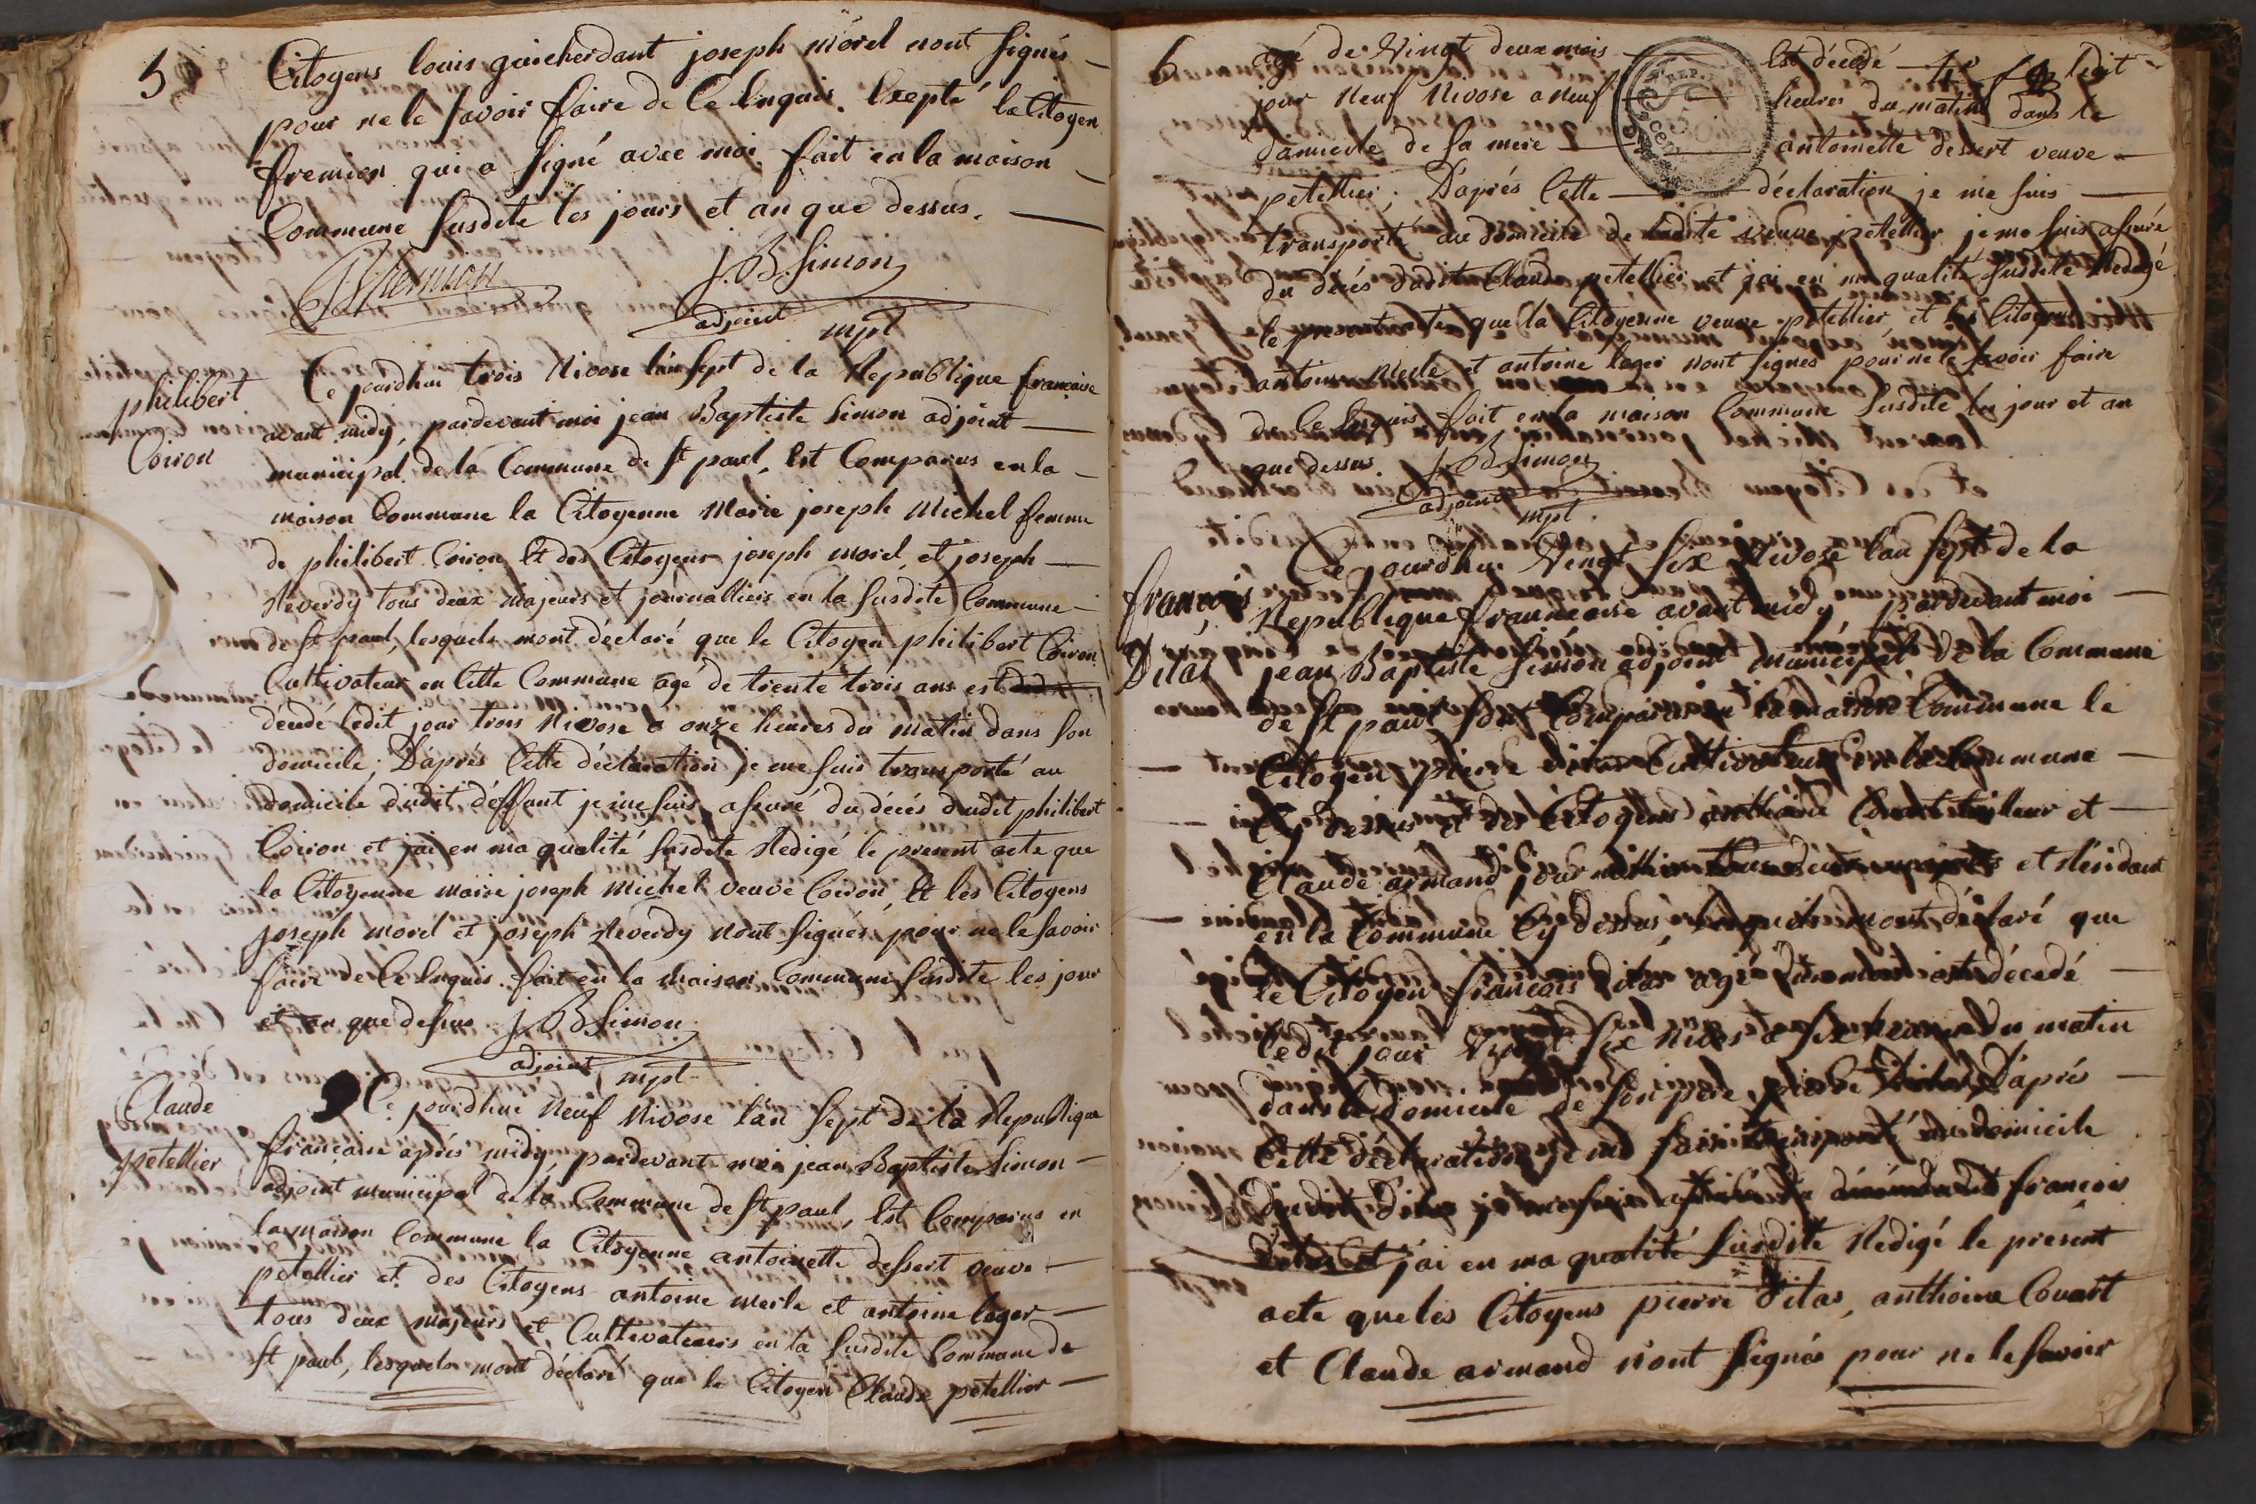 5
Citoyens louis guicherdant joseph morel nont signés
pour ne le savoir faire de Ce Enquis. Excepté le Citoyen
fremion qui a signé avec moi fait en la maison
Commune susdite les jours et an que dessus.
fremion J. B. Simon
adjoint mpl
philibert
Coiron
Ce jourdhui trois Nivose l'an sept de la Republique francaise
avant midy, pardevant moi jean Baptiste Simon adjoint
municipal de la Commune de St paul, Est Comparus en la
maison Commune la Citoyenne Marie joseph Michel femme
de philibert Coiron Et des Citoyens joseph morel, et joseph
Reverdy tous deux Majeurs et journalliers en la susdite Commune
de St paul, lesquels mont déclaré que le Citoyen philibert Coiron
Cultivateur en Cette Commune agé de trente trois ans est
décédé ledit jour trois Nivose a onze heures du matin dans son
domicile, D'aprés Cette déclaration je me suis transporté au
domicile dudit déffunt je me suis assuré du décés dudit philibert
Coiron et j'ai en ma qualité susdite Redigé le present acte que
la Citoyenne marie joseph Michel veuve Coiron, Et les Citoyens
joseph morel et joseph Reverdy Nont signés pour ne le savoir
faire de Ce Enquis. fait en la maison Commune susdite les jour
et an que dessus J. B. Simon
adjoint mpl
Claude
petellier
Ce jourdhui Neuf Nivose l'an Sept de la Republique
francaise aprés midy, pardevant moi jean Baptiste Simon
adjoint municipal de la Commune de St paul, Est Comparus en
la maison Commune la Citoyenne antoinette dessert veuve
petellier et des Citoyens antoine merle et antoine lager
tous deux majeurs et Cultivateurs en la susdite Commune de
St paul, lesquels mont déclaré que le Citoyen Claude petellier
6
agé de Vingt deux mois Est décédé ledit
jour Neuf Nivose a Neuf heures du matin dans le
domicile de sa mere antoinette dessert veuve
petellier, D'aprés Cette déclaration je me suis
transporté au domicile de ladite veuve petellier je me suis assuré
du décés dudit Claude petellier et j'ai en ma qualité susdite Redigé
le present acte que la Citoyenne veuve petellier, et les Citoyens
antoine Merle et antoine lager Nont signés pour ne le savoir faire
de Ce Enquis fait en la maison Commune susdite les jour et an
que dessus J. B. Simon
adjoint mpl
françois
Dilas
Ce jourdhui Vingt Six Nivose l'an sept de la
Republique franncaise avant midy, pardevant moi
jean Baptiste Simon adjoint Municipal de la Commune
de St paul sont Comparus en la maison Commune le
Citoyen pierre dilas Cultivateur en la Commune
Cy dessus et des Citoyens anthoine Couart tailleur et
Claude armand journallier tous deux majeurs et Résidant
en la Commune Cy dessus lesquels mont déclaré que
le Citoyen françois dilas agé est décedé
ledit jour Vingt Six Nivose a six heures du matin
dans le domicile de son pere pierre Dilas, D'aprés
Cette déclaration je me suis transporté au domicile
dudit Dilas je me suis assuré du décés dudit françois
dilas Et j'ai en ma qualité susdite Redigé le présent
acte que les Citoyens pierre dilas, anthoine Couart
et Claude armand n'ont signés pour ne le savoir